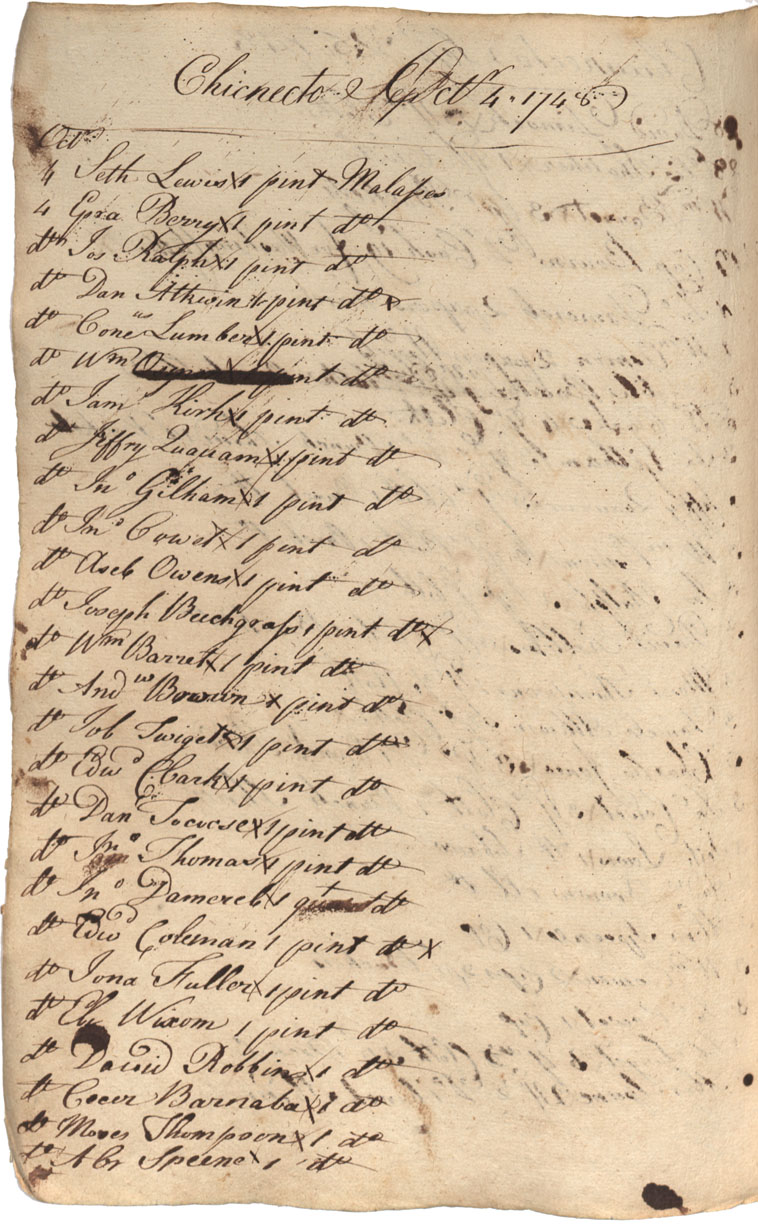 Chicnecto Octr 4. 1748
Octr
4 Seth Lewis x 1 pint Malases
4 Ezra Berry x 1 pint do
do Jos Ralph x 1 pint do
do Dan Athwin 1 pint do x
do Cones Lumber x 1 pint do
do Wm pint do
do Jam Kirk x 1 pint do
do Jiffry Quauam x 1 pint do
do Jno Gilham x 1 pint do
do Jno Cowet x 1 pint do
do Aseb Owens x 1 pint do
do Joseph Beechgrass 1 pint do x
do Wm Barret x 1 pint do
do Andw Brown x pint do
do Job Twiget x 1 pint do
do Edwd Clark x 1 pint do
do Dan Tococse x 1 pint do
do Jno Thomas x 1 pint do
do Jno Damereb x 1 do
do Edwd Coleman 1 pint do x
do Jona Fuller x 1 pint do
do Wixom 1 pint do
do David Robbins x 1 do
do Coeer Barnaba x 1 do
do Moses Thompson x 1 do
do Abr Speene x 1 do